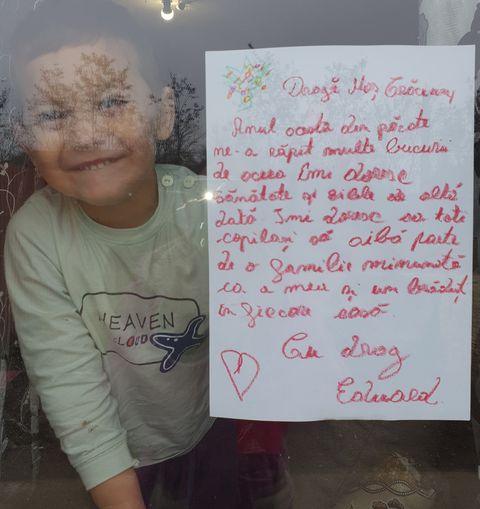 Dragă Moș Crăciun,
Anul acesta din păcate
ne-a răpit multe bucurii
de aceea îmi doresc
sănătate și zilele de altă
dată. Îmi doresc ca toți
copilași să aibă parte
de o familie minunată
ca a mea și un brăduț
în fiecare casă.
Cu drag
Eduard.
HEAVEN
CLOUD